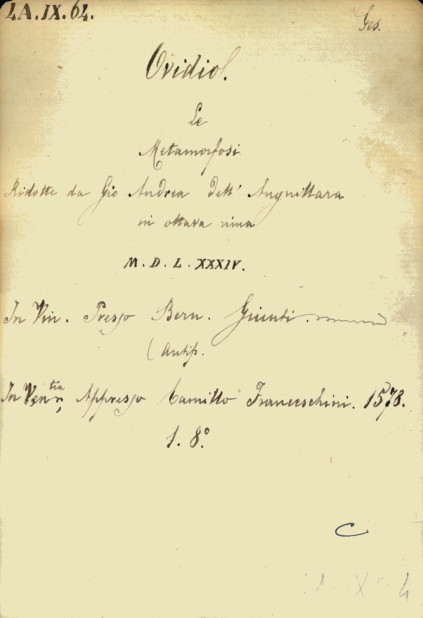 4A.IX.64.
Ges.
Ovidio.
Le
Metamorfosi
Ridotte da Gio Andrea dell' Anguillara
in ottava rima
M. D. L. XXXIV.
In Vin. Presso Bern. Giunti.
(Antip.
In Ventia, Appresso Camillo Franceschini. 1578.
1. 8.°
C